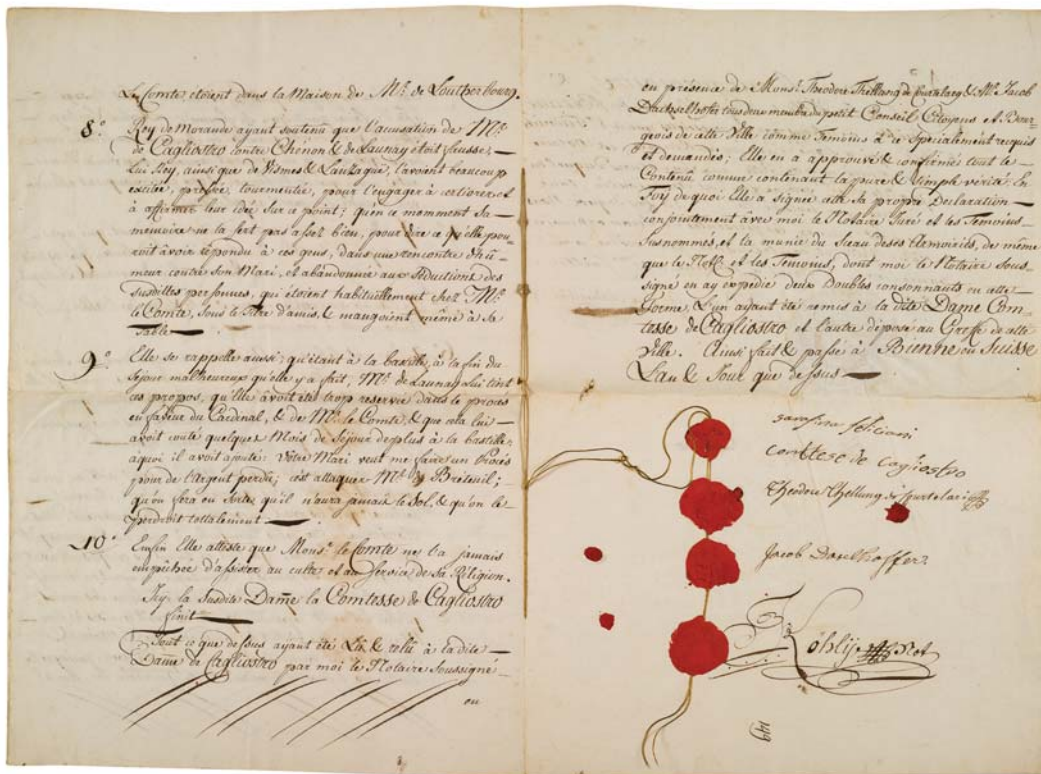 Le Comte etoient dans la Maison de Mr. de Loutherbourg.
8.° Roy de Morande ayant soutenu que l'acusation de Mr.
de Cagliostro contre Chénon & de Launay étoit fausse,
Lui Roy, ainsi que de Vismes & l'avoient beaucoup
excitée, pressée, tourmentée, pour l'engager à
à affirmer leur idée sur ce point; qu'en ce momment sa
memoire ne la sert pas assez bien, pour dire ce qu'elle pou-
roit avoir répondu à ces gens, dans une rencontre d'hu-
meur contre son Mari, et abandonnée aux séductions des
susdittes personnes, qui étoient habituellement chez Mr.
le Comte, sous le titre d'amis, & mangoient même à sa
table
9.° Elle se rappelle aussi; qu'étant à la bastille, à la fin du
sejour malheureux qu'elle y a fait, Mr. de Launay lui tint
ces propos, qu'elle avoit été trop reservée dans le procés
en faveur du Cardinal, & de Mr. le Comte, & que cela lui
avoit couté quelques Mois de Séjour de plus à la bastille,
aquoi il avoit ajouté: Vôtre Mari veut me faire un Procés
pour de l'argent perdu; c'est attaquer Mr. de Breteuil;
qu'on fera en sorte, qu'il n'aura jamais le Sol, & qu'on le
perdroit tottalement
10.° Enfin Elle atteste que Monsr. le Comte ne l'a jamais
empêchée d'assister au culte et au service de sa Réligion.
Icy la susdite Dame la Comtesse de Cagliostro
finit
Tout ce que dessus ayant été Lû & relû à la dite
Dame de Cagliostro par moi le Notaire soussigné
en
en présence de Monsr. Theodore Thellung de Courtelary & Mr. Jacob
Dachselhofer tous deux membres du petit Conseil Citoyens et Bour-
geois de cette Ville comme Temoins à ce spécialement requis
et demandés; Elle en à approuvé & confirmé tout le
Contenu comme contenant la pure & simple vérité. En
Foy de quoi Elle a signée cette sa propre Declaration
conjointement avec moi le Notaire Juré et les Temoins
susnommés, et la munie du sceau de ses Armoiries, de même
que le Nott. et les Temoins, dont moi le Notaire sous-
signé en ay expedié deux Doubles consonnants en cette
forme. L'un ayant été remis à la dite Dame Com-
tesse de Cagliostro et l'autre deposé au Greffe de cette
Ville. Ainsi fait & passé à Bienne en Suisse
L'an & Jour que dessus
sarafina feliciani
comtese de cagliostro
Theodore Thellung de Courtelari
Jacob
Köhly Not
149